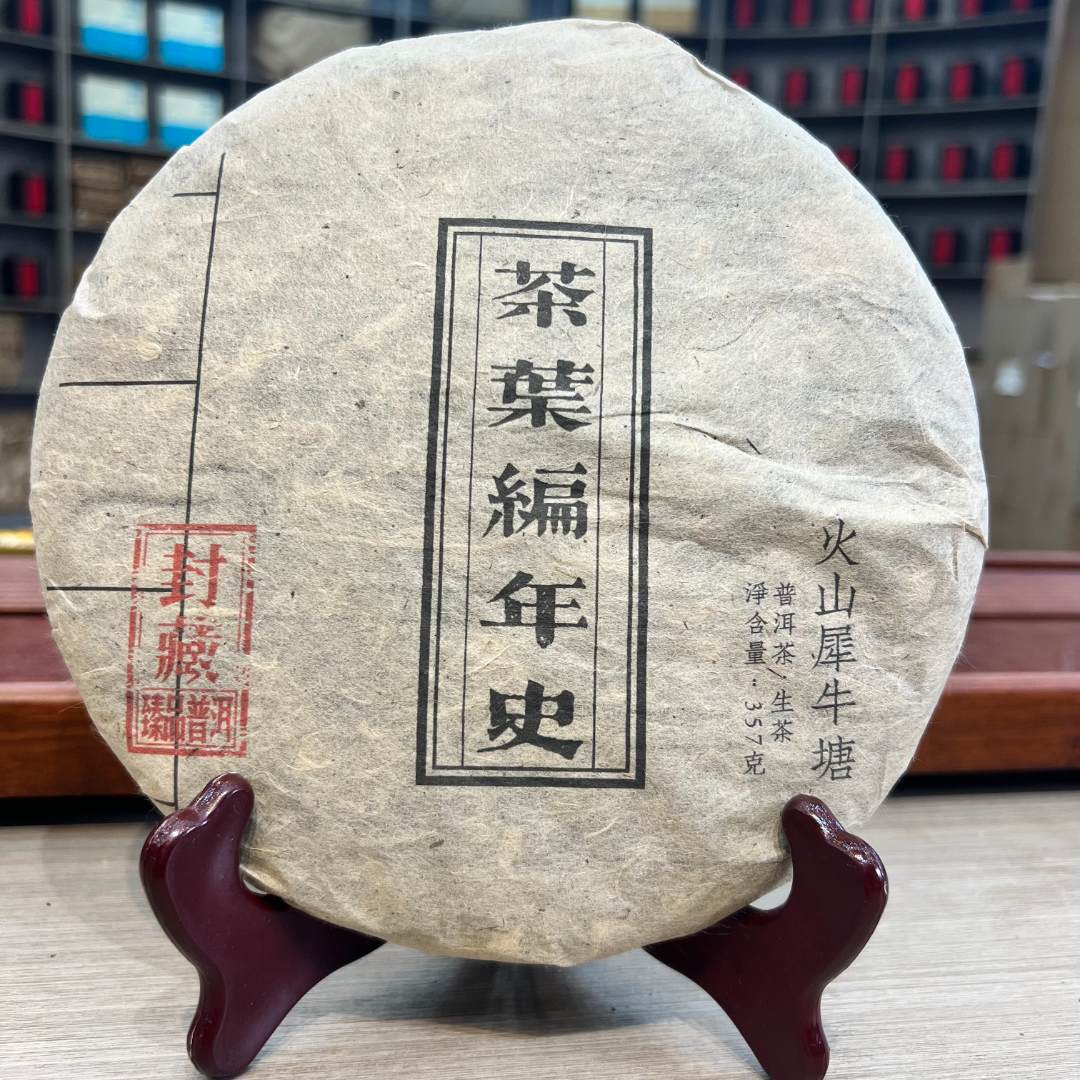 茶葉編年史
火山犀牛塘
普洱茶/生茶
淨含量:357克
封藏
臻品普洱